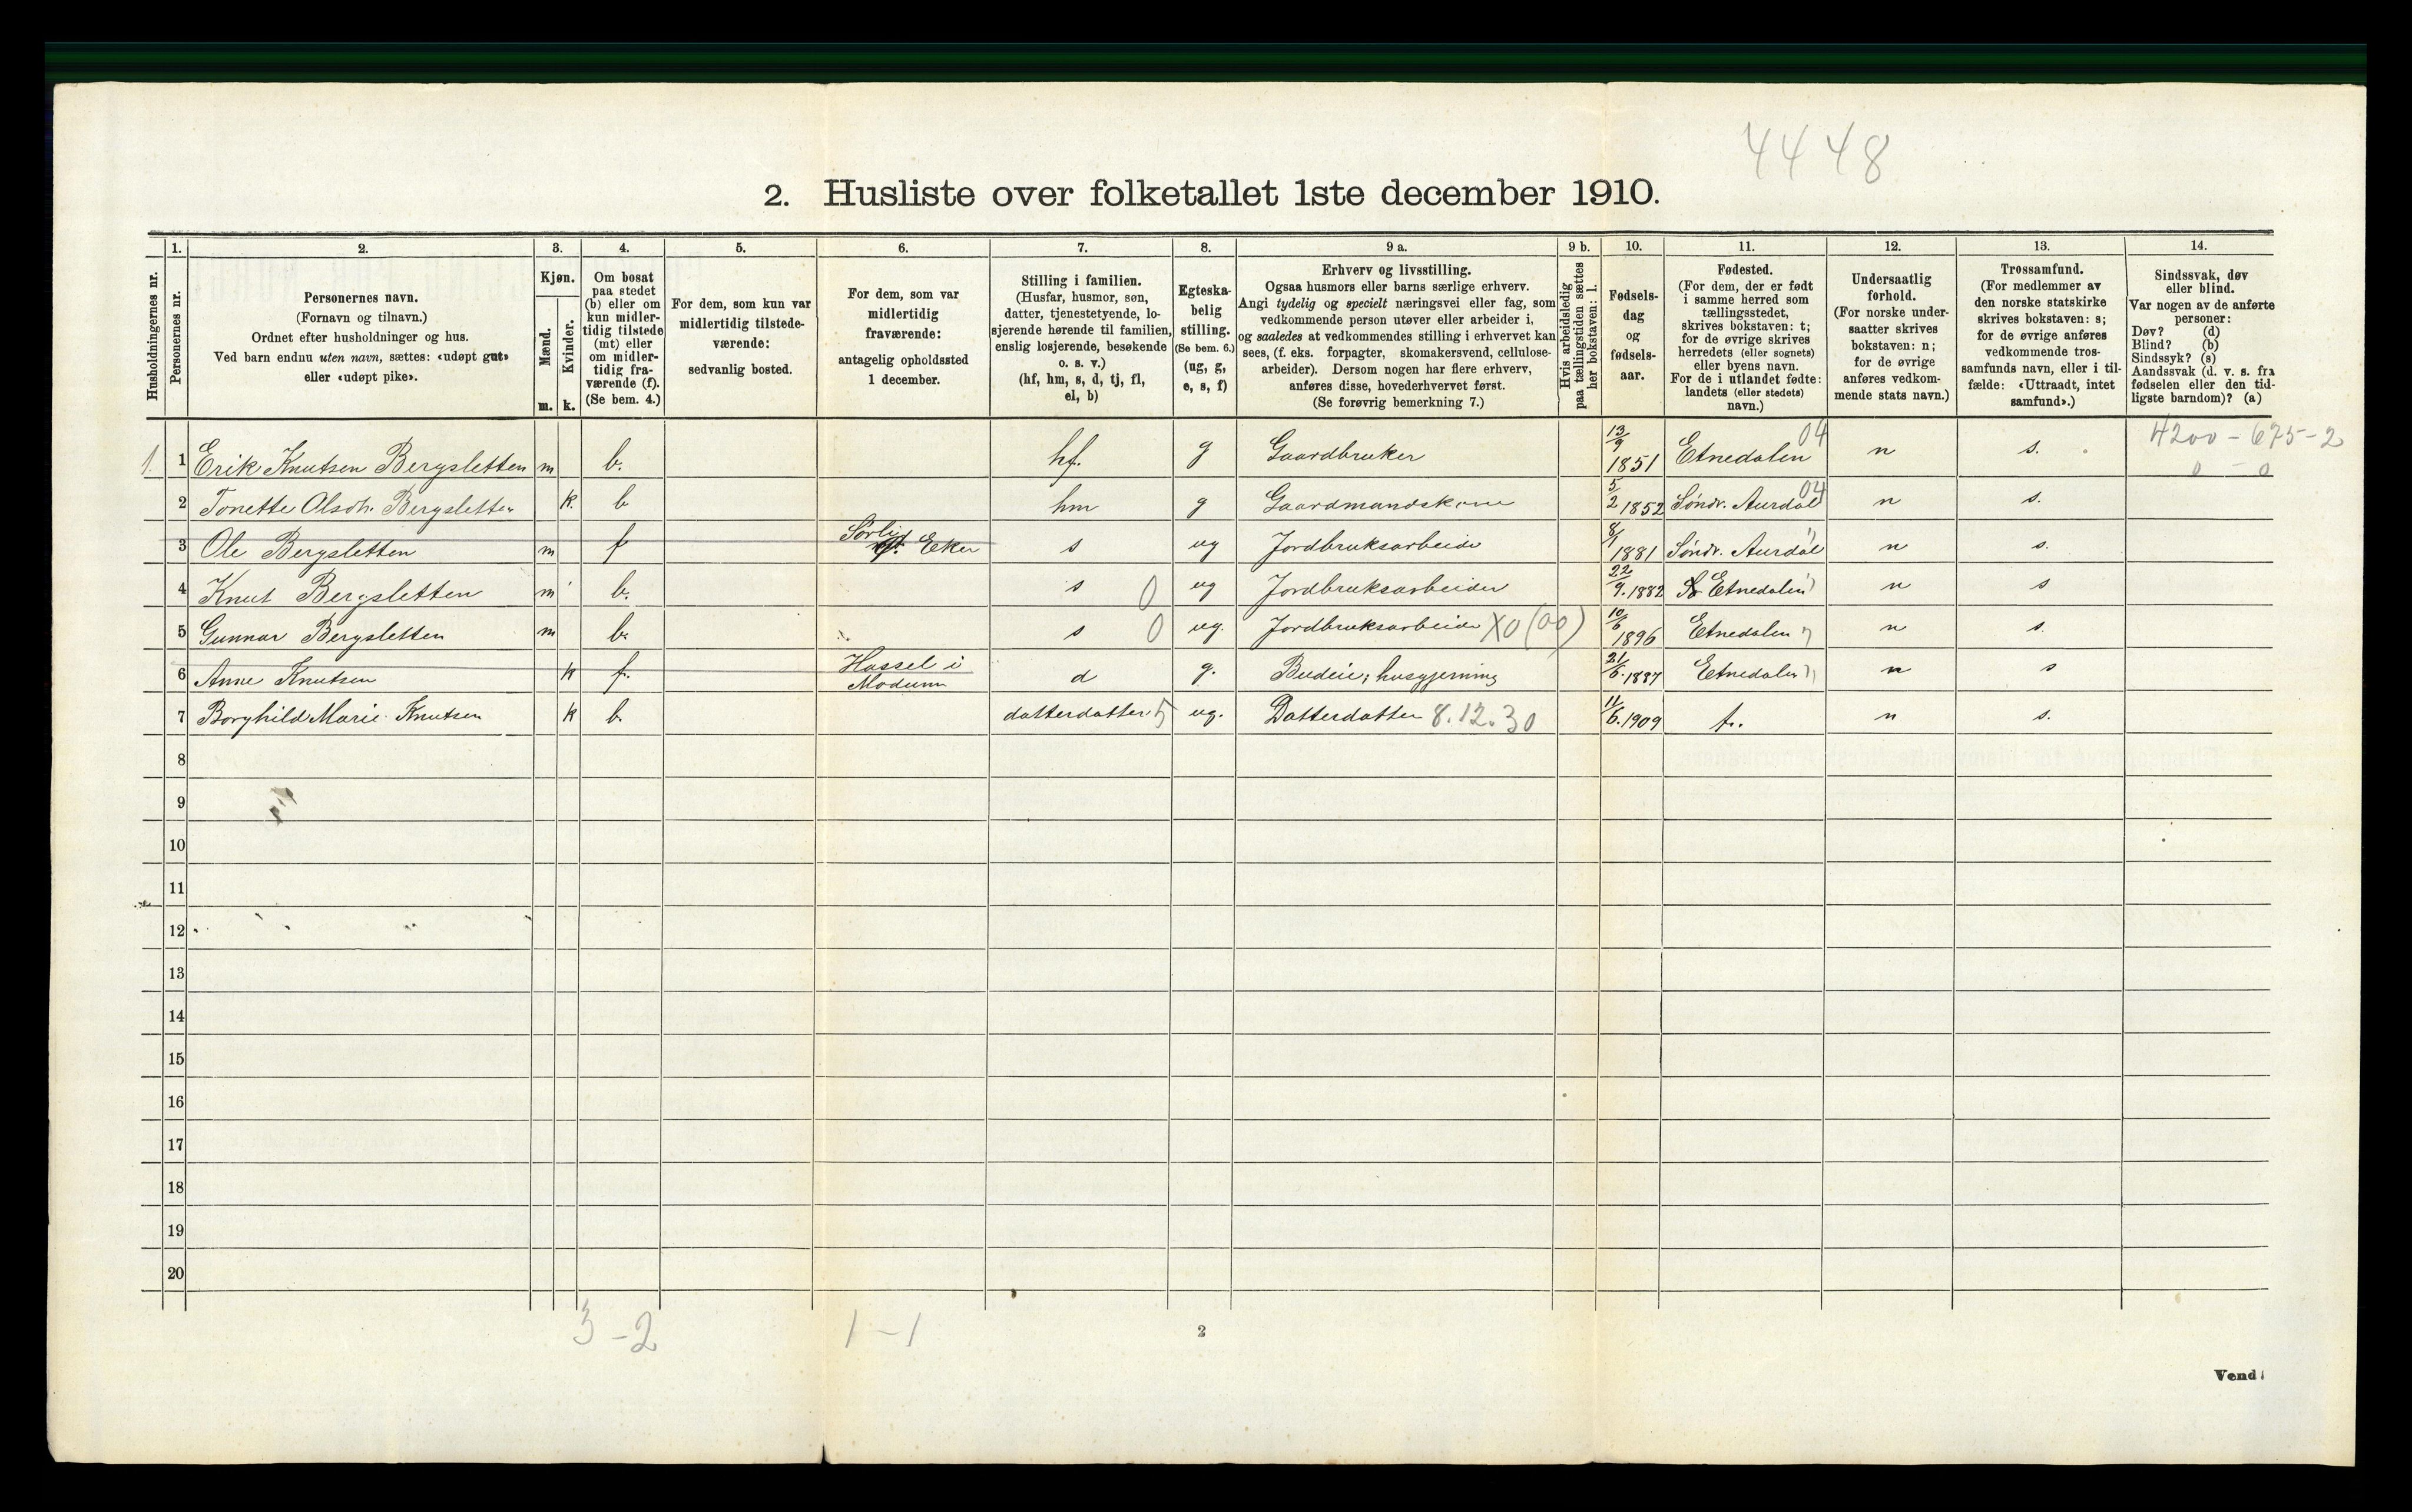 4448
2. Husliste over folketallet 1ste december 1910.
Husholdningernes nr.
1. Personernes nr.
2. Personernes navn.
(Fornavn og tilnavn.)
Ordnet efter husholdninger og hus.
Ved barn endnu uten navn, sættes: «udøpt gut»
eller «udøpt pike».
3. Kjøn.
Mænd. m.
Kvinder. k.
4. Om bosat
paa stedet
(b) eller om
kun midler-
tidig tilstede
(mt) eller
om midler-
tidig fra-
værende (f).
(Se bem. 4.)
5. For dem, som kun var
midlertidig tilstede-
værende:
sedvanlig bosted.
6. For dem, som var
midlertidig
fraværende:
antagelig opholdssted
1 december.
7. Stilling i familien.
(Husfar, husmor, søn,
datter, tjenestetyende, lo-
sjerende hørende til familien,
enslig losjerende, besøkende
o. s. v.)
(hf, hm, s, d, tj, fl,
el, b)
8. Egteska-
belig
stilling.
(Se bem. 6.)
(ug, g,
e, s, f)
9 a. Erhverv og livsstilling.
Ogsaa husmors eller barns særlige erhverv.
Angi tydelig og specielt næringsvei eller fag, som
vedkommende person utøver eller arbeider i,
og saaledes at vedkommendes stilling i erhvervet kan
sees, (f. eks. forpagter, skomakersvend, cellulose-
arbeider). Dersom nogen har flere erhverv,
anføres disse, hovederhvervet først.
(Se forøvrig bemerkning 7.)
9 b. Hvis arbeidsledig
paa tællingstiden sættes
her bokstaven: l.
10. Fødsels-
dag
og
fødsels-
aar.
11. Fødested.
(For dem, der er født
i samme herred som
tællingsstedet,
skrives bokstaven: t;
for de øvrige skrives
herredets (eller sognets)
eller byens navn.
For de i utlandet fødte:
landets (eller stedets)
navn.)
12. Undersaatlig
forhold.
(For norske under-
saatter skrives
bokstaven: n;
for de øvrige
anføres vedkom-
mende stats navn.)
13. Trossamfund.
(For medlemmer av
den norske statskirke
skrives bokstaven: s;
for de øvrige anføres
vedkommende tros-
samfunds navn, eller i til-
fælde: «Uttraadt, intet
samfund».)
14. Sindssvak, døv
eller blind.
Var nogen av de anførte
personer:
Døv? (d)
Blind? (b)
Sindssyk? (s)
Aandssvak (d. v. s. fra
fødselen eller den tid-
ligste barndom)? (a)
1. 1 Erik Knutsen Bergsletten m b. hf. g Gaardbruker 13/9 1851 Etnedalen 04 n s. 4200 - 675 - 2
0 - 0
2 Tonette Olsdtr. Bergsletten k. b hm g Gaardmandskone 5/2 1852 Søndr. Aurdal 04 n s.
3 Ole Bergsletten m f Sørli Eker s ug Jordbruksarbeide 8/1 1881 Søndr. Aurdal n s.
4 Knut Bergsletten m b. s 0 ug Jordbruksarbeider 22/9. 1882 Etnedalen n s
5 Gunnar Bergsletten m b. s 0 ug. Jordbruksarbeide XO (00) 10/6 1896 Etnedalen n s.
6 Anne Knutsen k f. Hassel i
Modum d g. Budeie; husgjerning 21/6. 1887 Etnedalen n s
7 Borghild Marie Knutsen k b. datterdatter 5 ug. Datterdatter 8.12.30 11/6. 1909 t. n s.
8
9
10
11
12
13
14
15
16
17
18
19
20
3 - 2 1 - 1
2
Vend!